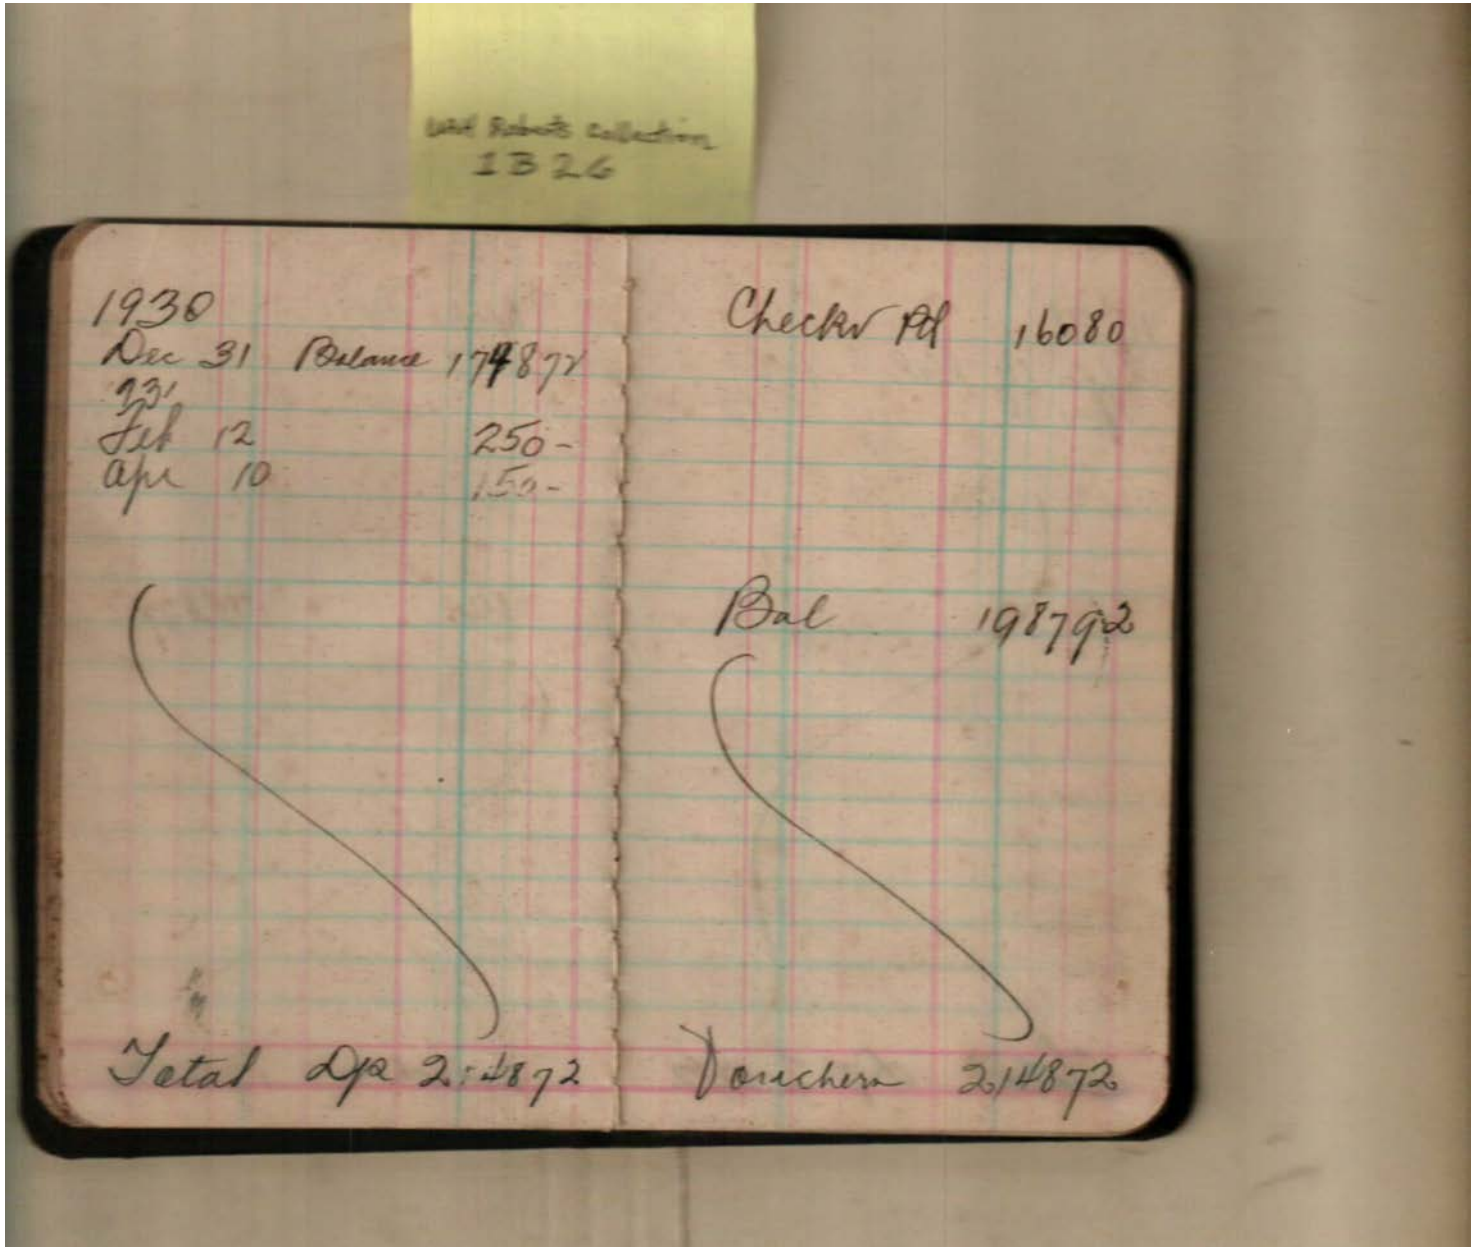 UAH Roberts Collection
1B26
1930
Dec 31 Balance 174872
931
Feb 12 250-
Apr 10 150-
Total Dps 214872
Checks Pd 16080
Bal 198792
Vouchers 214872